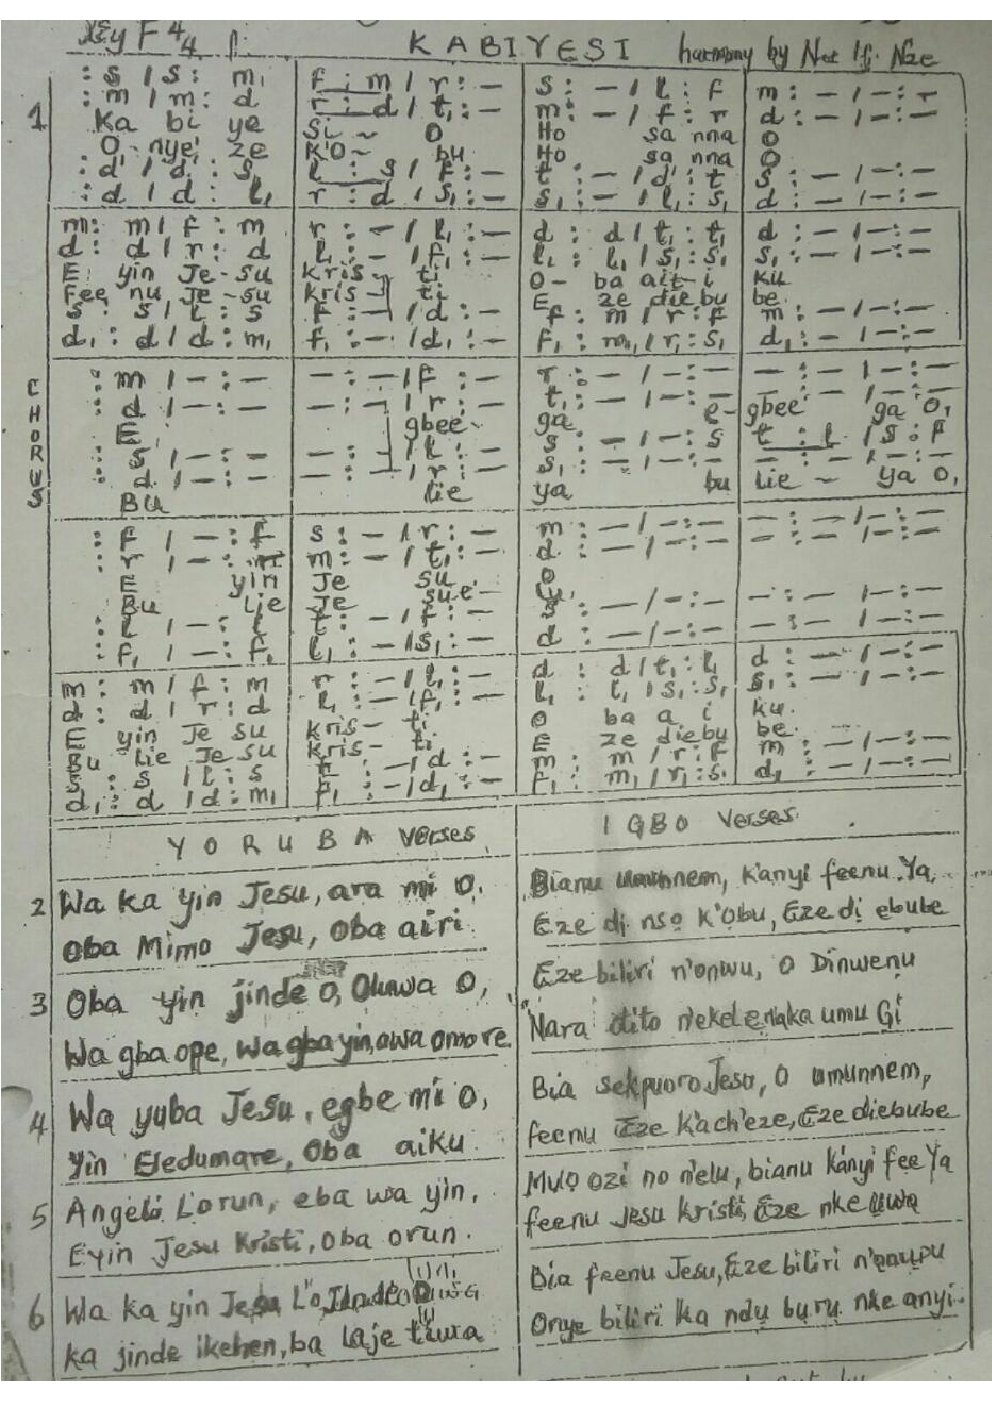 Key F 4/4 f:
KABIYESI
harmony by Nze
: s / s : m, | f : m / r : – | s : – / l : f | m : – / – : r
1
: m / m : d | r : d / t, : – | m : – / f : r | d : – / – : –
Ka bi ye | Si ~ O | Ho sa nna | O
O nye ze | K'O ~ bu | Ho sa nna | O
: d / d : s, | l : s / f : – | t : – / d' : t | s : – / – : –
: d / d : l, | r : d / s, : – | s, : – / l, : s, | d : – / – : –
m : m / f : m | r : – / l, : – | d : d / t, : t, | d : – / – : –
d : d / r : d | l, : – / f, : – | l, : l, / s, : s, | s, : – / – : –
E yin Je - su | Kris - ti | O - ba ait - i | ku
Fee nu Je - su | Kris - ti | E ze die bu | be
s : s / l : s | f : – / d : – | f : m / r : f | m : – / – : –
d, : d / d : m, | f, : – / d, : – | f, : m, / r, : s, | d, : – / – : –
CHORUS
: m / – : – | – : – / f : – | r : – / – : – | – : – / – : –
: d / – : – | – : – / r : – | t, : – / – : – | – : – / – : –
E, | gbee ~ | ga e - | gbee ga O,
: s / – : – | – : – / l : – | s : – / – : s | t : l / s : f
: d / – : – | – : – / r : – | s, : – / – : – | – : – / – : –
BU | lie | ya bu | lie ~ ya O,
: f / – : f | s : – / r : – | m : – / – : – | – : – / – : –
: r / – : | m : – / t, : – | d : – / – : – | – : – / – : –
E yin | Je su | O
Bu lie | Je su - e
: l / – : l | t : – / f : – | s : – / – : – | – : – / – : –
: f, / – : f, | l, : – / s, : – | d : – / – : – | – : – / – : –
m : m / f : m | r : – / l, : – | d : d / t, : l, | d : – / – : –
d : d / r : d | l, : – / f, : – | l, : l, / s, : s, | s, : – / – : –
E yin Je su | Kris - ti | O ba a i | ku.
Bu lie Je su | Kris - ti | E ze die bu | be.
s : s / l : s | f : – / d : – | m : m / r : f | m : – / – : –
d, : d / d : m, | f, : – / d, : – | f, : m, / r, : s, | d, : – / – : –
YORUBA verses
2 Wa ka yin Jesu, ara mi o,
Oba Mimo Jesu, Oba airi.
3 Oba yin jinde o, Oluwa O,
Wa gba ope, wa gba yin, awa omo re.
4 Wa yuba Jesu, egbe mi o,
Yin Eledumare, Oba aiku.
5 Angeli Lorun, eba wa yin,
Eyin Jesu Kristi, Oba orun.
6 Wa ka yin Jesu Lo
ka jinde ikehen, ba laje tiwa
IGBO verses
Bianu umunnem, k'anyi feenu Ya,
Eze dị nsọ k'Obu, Eze dị ebube
Eze biliri n'onwu, O Dinwenụ
Nara otito n'ekele naka umu Gi
Bia sekpuoro Jesu, O umunnem,
feenu Eze k'ach'eze, Eze diebube
Mụọ ozi no n'elu, bianu k'anyi fee Ya
feenu Jesu Kristi, Eze nke ụwa
Bia feenu Jesu, Eze biliri n'onwu
Onye biliri ka ndụ bụrụ nke anyi.